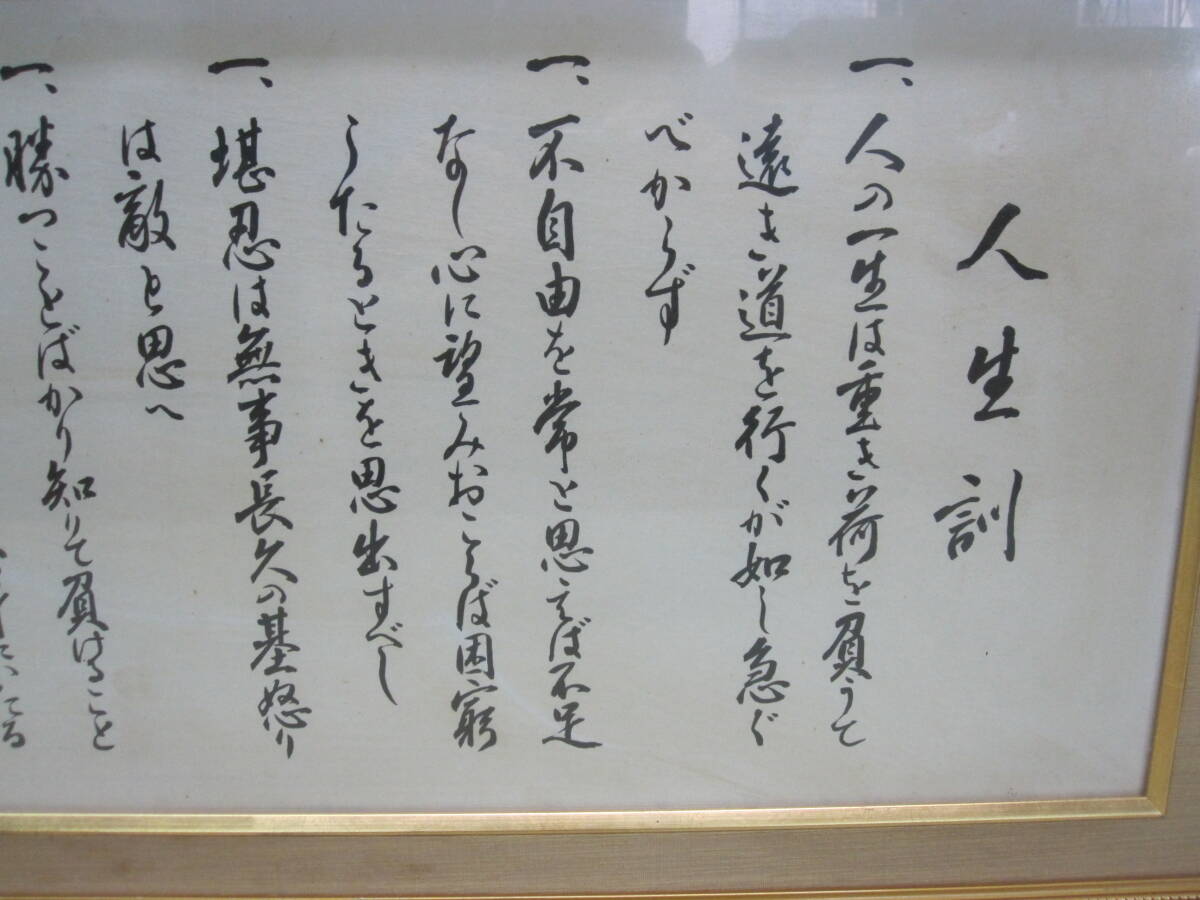 人生訓
一、人の一生は重き荷を負うて
遠き道を行くが如し急ぐ
べからず
一、不自由を常と思えば不足
なし心に望みおこらば困窮
したるときを思出すべし
一、堪忍は無事長久の基怒り
は敵と思へ
一、勝つことばかり知りて負けること